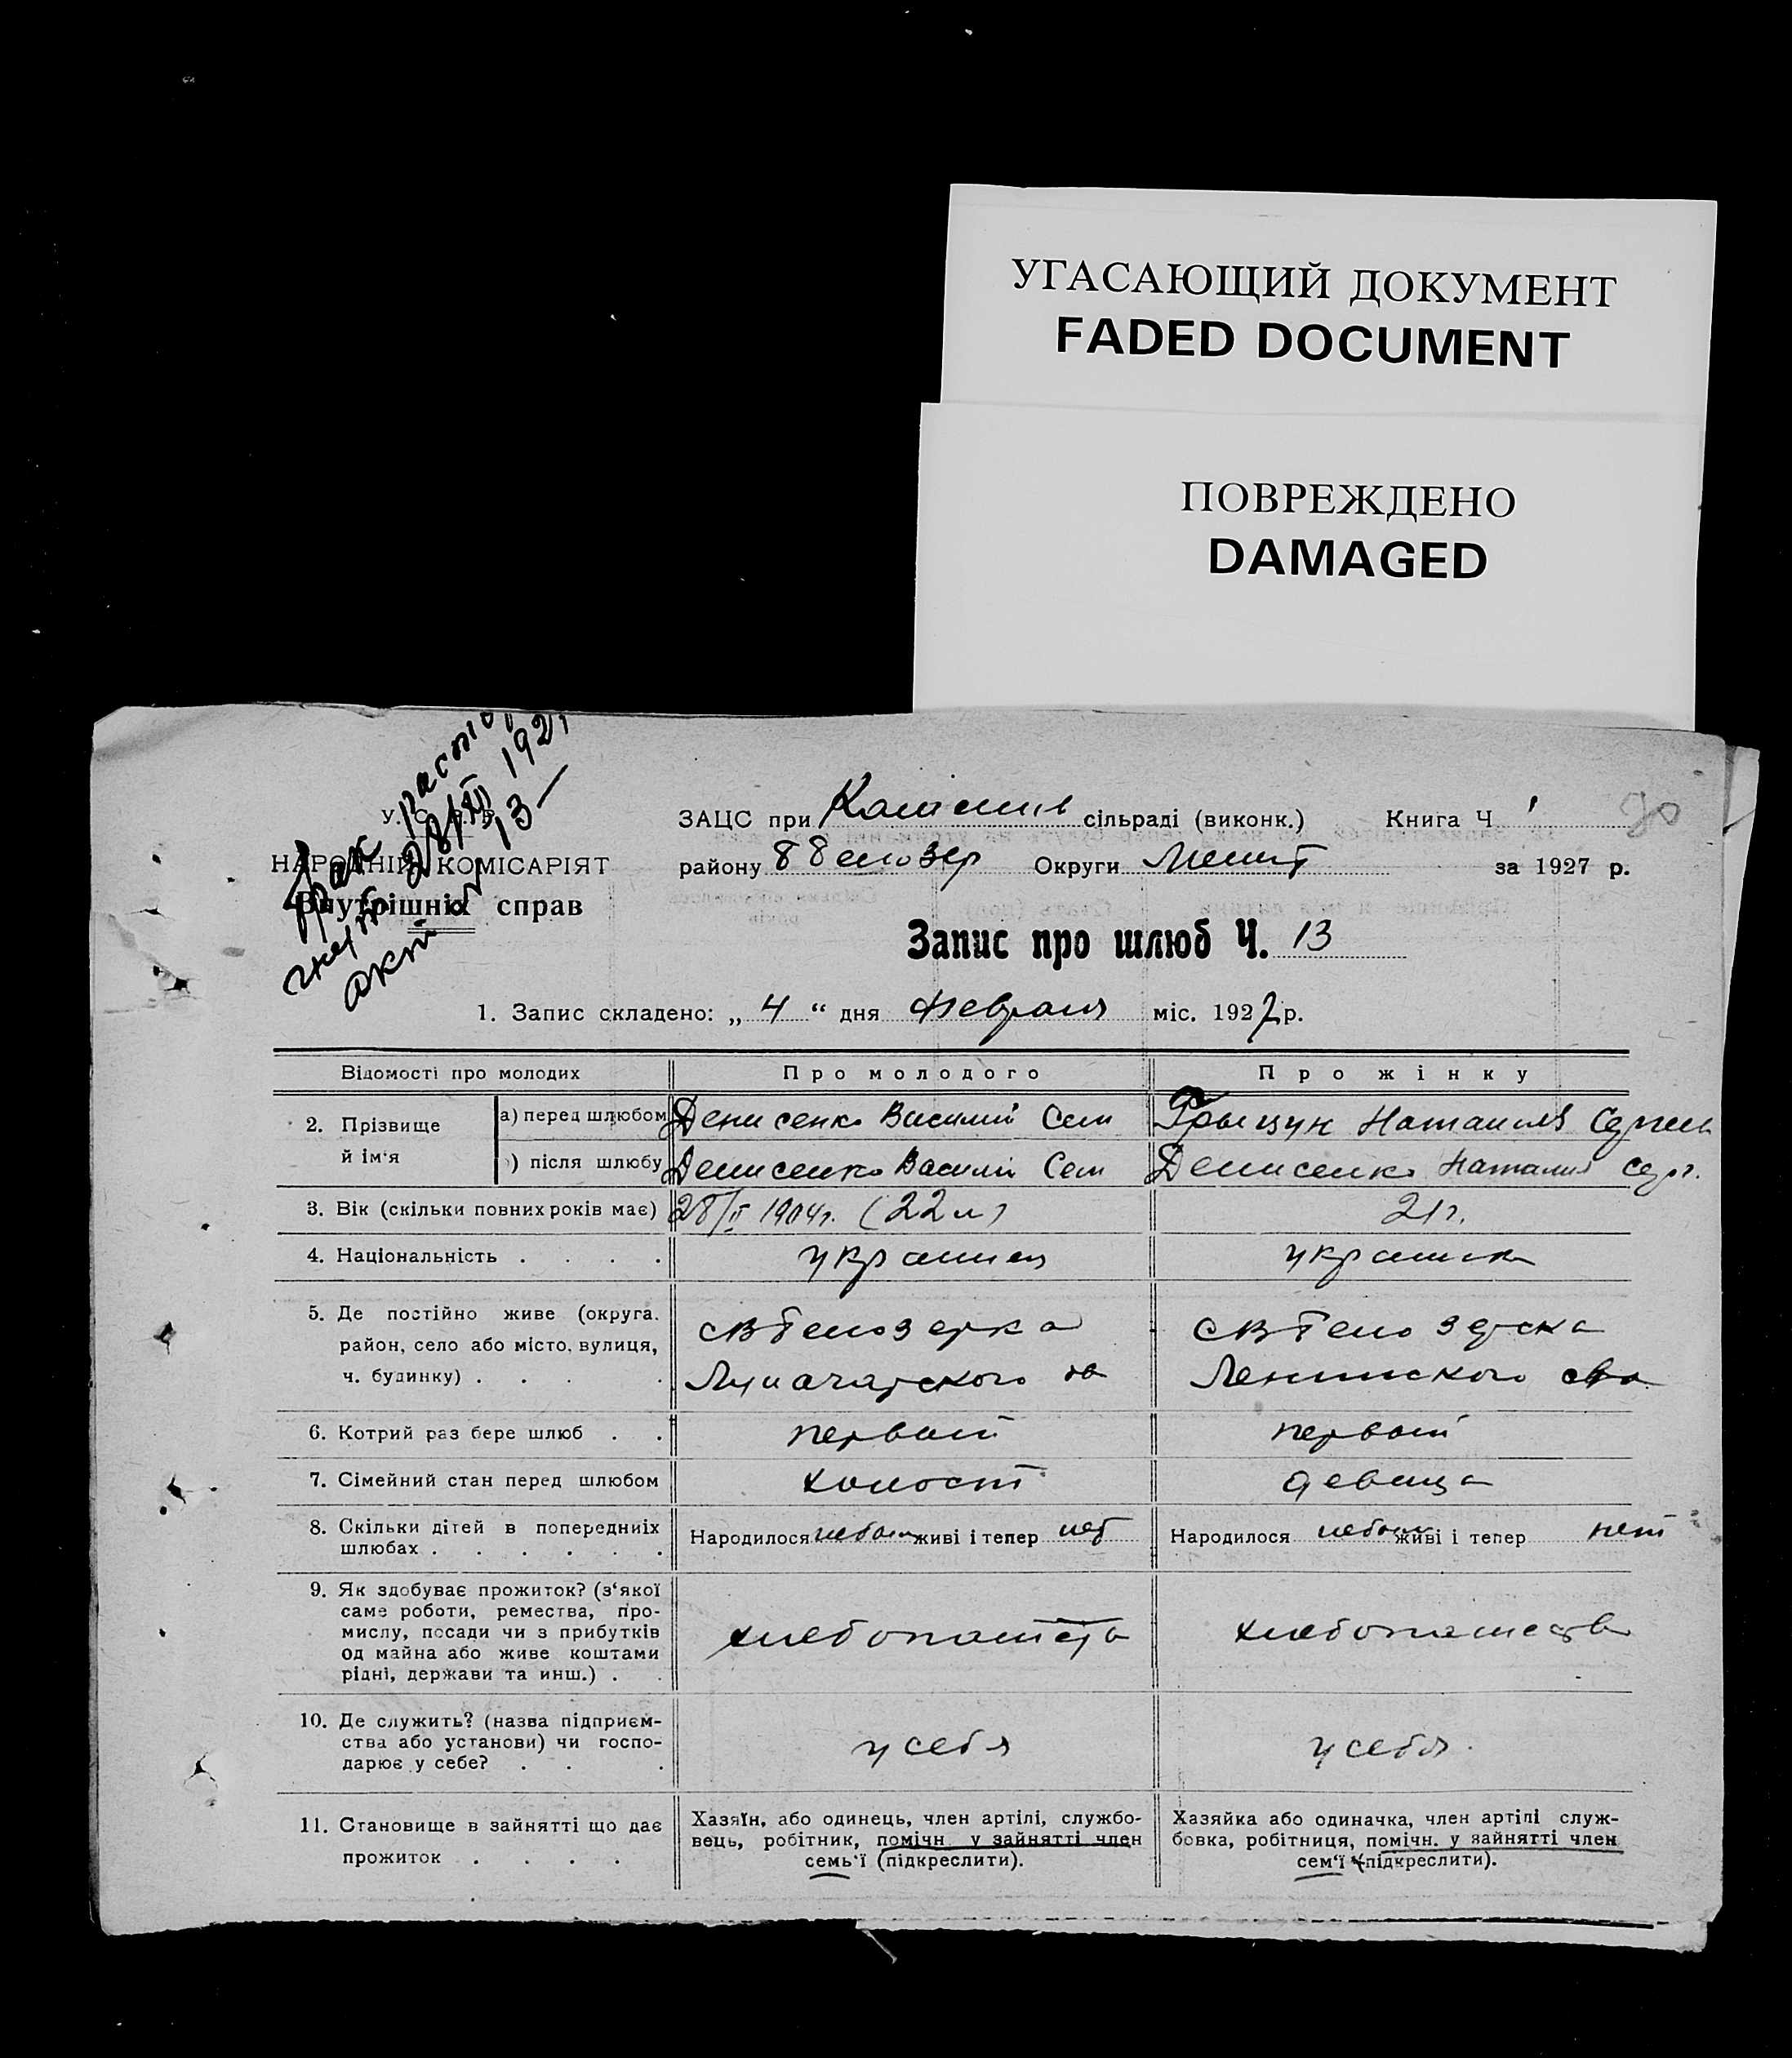 УГАСАЮЩИЙ ДОКУМЕНТ
FADED DOCUMENT
ПОВРЕЖДЕНО
DAMAGED
Брак
28/XII 192
акт № 13 —
У. С. Р. Р.
НАРОДНІЙ КОМІСАРІЯТ
Внутрішніх справ
ЗАЦС при сільраді (виконк.) Книга Ч 1 90
району Округи за 1927 р.
Запис про шлюб Ч. 13
1. Запис складено: „ 4 “ дня февраля міс. 1927 р.
Відомості про молодих Про молодого Про жінку
2. Прізвище й ім'я
а) перед шлюбом Денисенко Василий Сем Наталия
) після шлюбу Денисенко Василий Сем Денисенко Наталия Серг.
3. Вік (скільки повних років має) 28/II 1904 г. (22 л) 21 г.
4. Національність . . . . украинец украинка
5. Де постійно живе (округа. район, село або місто, вулиця, ч. будинку) . . . .
с Белозерка
Луначарского
с Белозерка
Ленинского
6. Котрий раз бере шлюб . . первый первый
7. Сімейний стан перед шлюбом холост девица
8. Скільки дітей в попередниіх шлюбах . . . . . .
Народилося небыло живі і тепер нет
Народилося небыло живі і тепер нет
9. Як здобуває прожиток? (з'якої
саме роботи, ремества, про-
мислу, посади чи з прибутків
од майна або живе коштами
рідні, держави та инш.) . .
хлебопашество
хлебопашество
10. Де служить? (назва підприєм-
ства або установи) чи госпо-
дарює у себе? . . .
у себя
у себя.
11. Становище в зайнятті що дає
прожиток . . . .
Хазяїн, або одинець, член артілі, службо-
вець, робітник, помічн у зайнятті член
семь'ї (підкреслити).
Хазяйка або одиначка, член артілі служ-
бовка, робітниця, помічн. у зайнятті член
сем'ї (підкреслити).